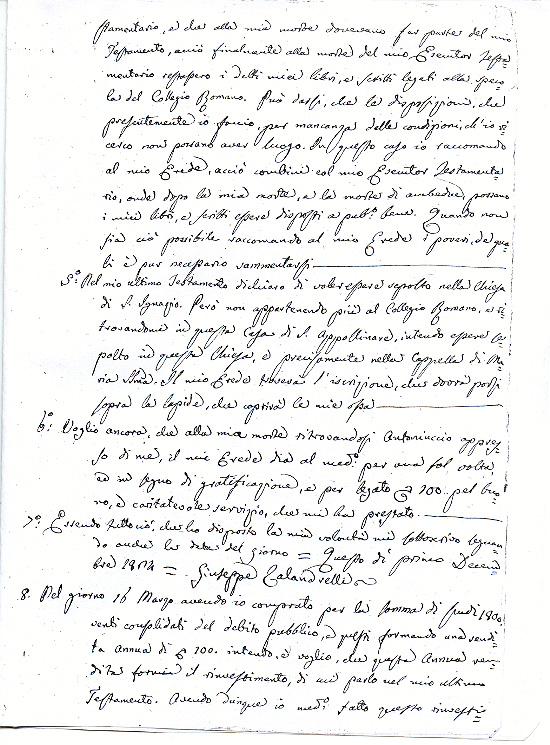 stamentario, e che alla mia morte dovevano far parte del mio
Testamento, acciò finalmente alla morte del mio Esecutor Testa=
mentario restassero i detti miei libri, e scritti legati alla speco=
la del Collegio Romano. Può darsi, che le disposizioni, che
presentemente io faccio, per mancanza delle condizioni, ch'io ri=
cerco non possano aver luogo. In questo caso io raccomando
al mio Erede, acciò combini col mio Esecutor Testamenta=
rio, onde dopo la mia morte, e la morte di ambedue, possano
i miei libri, e scritti essere disposti a pub.º bene. Quando non
sia ciò possibile raccomando al mio Erede i poveri, de' qua=
li è pur necessario rammentarsi
5º: Nel mio ultimo Testamento dichiaro di voler essere sepolto nella Chiesa
di S. Ignazio. Però non appartenendo più al Collegio Romano, e ri=
trovandomi in questa Casa di S. Appollinare, intendo essere se=
polto in questa Chiesa, e precisamente nella Cappella di Ma=
ria SSma. Il mio Erede troverà l'iscrizione, che dovrà porsi
sopra la lapide, che coprirà le mie ossa
6º: Voglio ancora, che alla mia morte ritrovandosi Antoniuccio appres=
so di me, il mio Erede dia al med.º per una sol volta,
ed in segno di gratificazione, e per legato 100. pel buo=
no, e caritatevole servizio, che mi ha prestato.
7º: Essendo tutto ciò, che ho disposto la mia volontà mi sottoscrivo segnan=
do anche la data del giorno = Questo dì primo Decem=
bre 1824 = Giuseppe Calandrelli
8. Nel giorno 16 Marzo avendo io comprato per la somma di scudi 1900
venti consolidati del debito pubblico, e questi formando una rendi=
ta Annua di 100. intendo, e voglio, che questa Annua ren=
dita formi il rinvestimento, di cui parlo nel mio ultimo
Testamento. Avendo dunque io med.º fatto questo rinvesti=